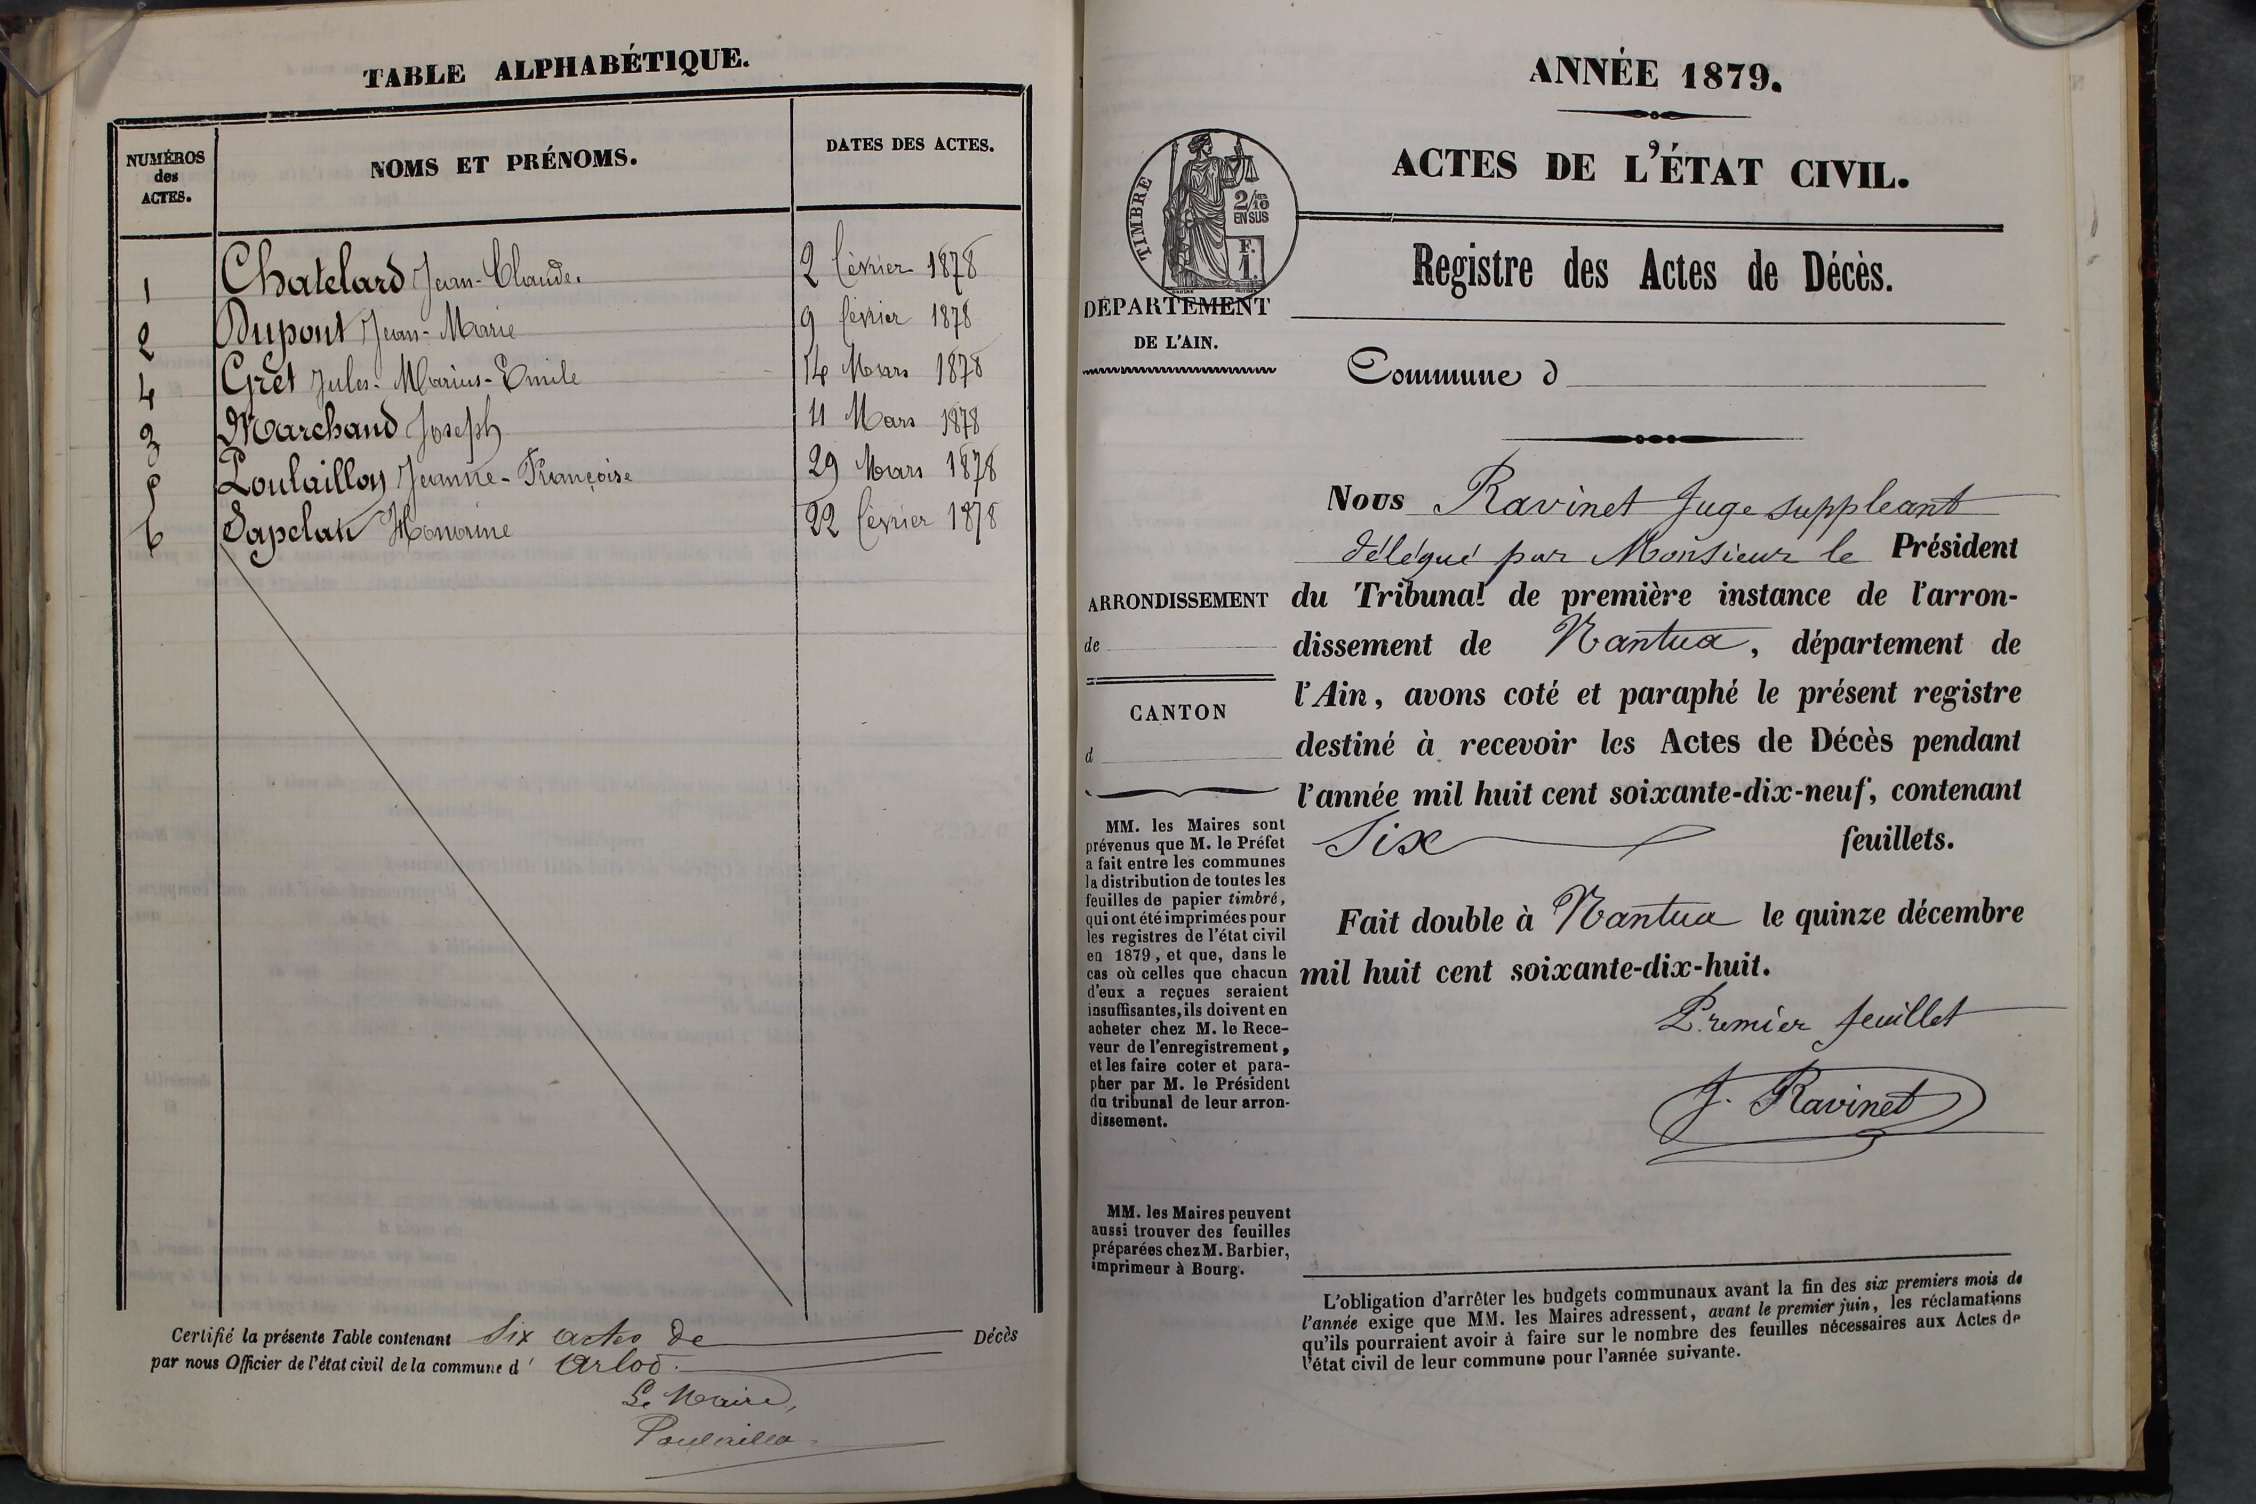 TABLE ALPHABÉTIQUE.
NUMÉROS
des
ACTES.
NOMS ET PRÉNOMS.
DATES DES ACTES.
1 Chatelard Jean-Claude. 2 février 1878
2 Dupont Jean-Marie 9 février 1878
4 Gret Jules-Marius-Emile 14 Mars 1878
3 Marchand Joseph 11 Mars 1878
5 Poulaillon Jeanne-Françoise 29 Mars 1878
6 Honorine 22 février 1878
Certifié la présente Table contenant Six actes de Décès
par nous Officier de l'état civil de la commune d' Arlod.
Le Maire,
ANNÉE 1879.
ACTES DE L'ÉTAT CIVIL.
TIMBRE
2/10
EN SUS
F.
1.
Registre des Actes de Décès.
DÉPARTEMENT
DE L'AIN.
Commune d
Nous Ravinet Juge suppleant
délégué par Monsieur le Président
ARRONDISSEMENT
de
CANTON
d
du Tribunal de première instance de l'arron-
dissement de Nantua, département de
l'Ain, avons coté et paraphé le présent registre
destiné à recevoir les Actes de Décès pendant
l'année mil huit cent soixante-dix-neuf, contenant
Six feuillets.
Fait double à Nantua le quinze décembre
mil huit cent soixante-dix-huit.
Premier feuillet
J. Ravinet
MM. les Maires sont
prévenus que M. le Préfet
a fait entre les communes
la distribution de toutes les
feuilles de papier timbré,
qui ont été imprimées pour
les registres de l'état civil
en 1879, et que, dans le
cas où celles que chacun
d'eux a reçues seraient
insuffisantes, ils doivent en
acheter chez M. le Rece-
veur de l'enregistrement,
et les faire coter et para-
pher par M. le Président
du tribunal de leur arron-
dissement.
MM. les Maires peuvent
aussi trouver des feuilles
préparées chez M. Barbier,
imprimeur à Bourg.
L'obligation d'arrêter les budgets communaux avant la fin des six premiers mois de
l'année exige que MM. les Maires adressent, avant le premier juin, les réclamations
qu'ils pourraient avoir à faire sur le nombre des feuilles nécessaires aux Actes de
l'état civil de leur commune pour l'année suivante.